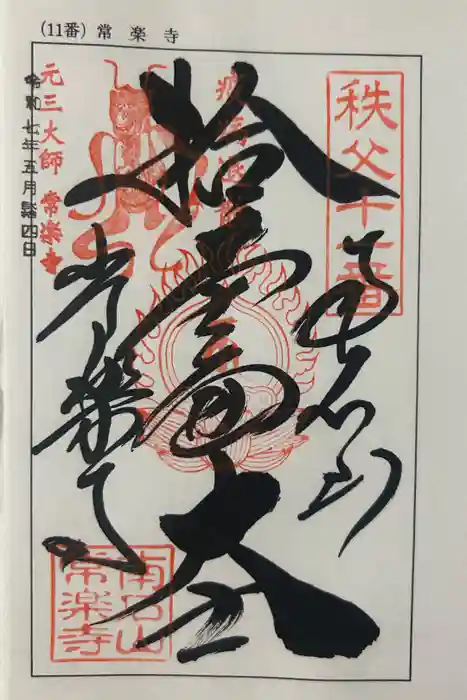 (11番) 常楽寺
秩父十一番
南石山
拾壹面大士
常楽寺
元三大師 常楽寺
令和七年五月四日
南石山
常楽寺